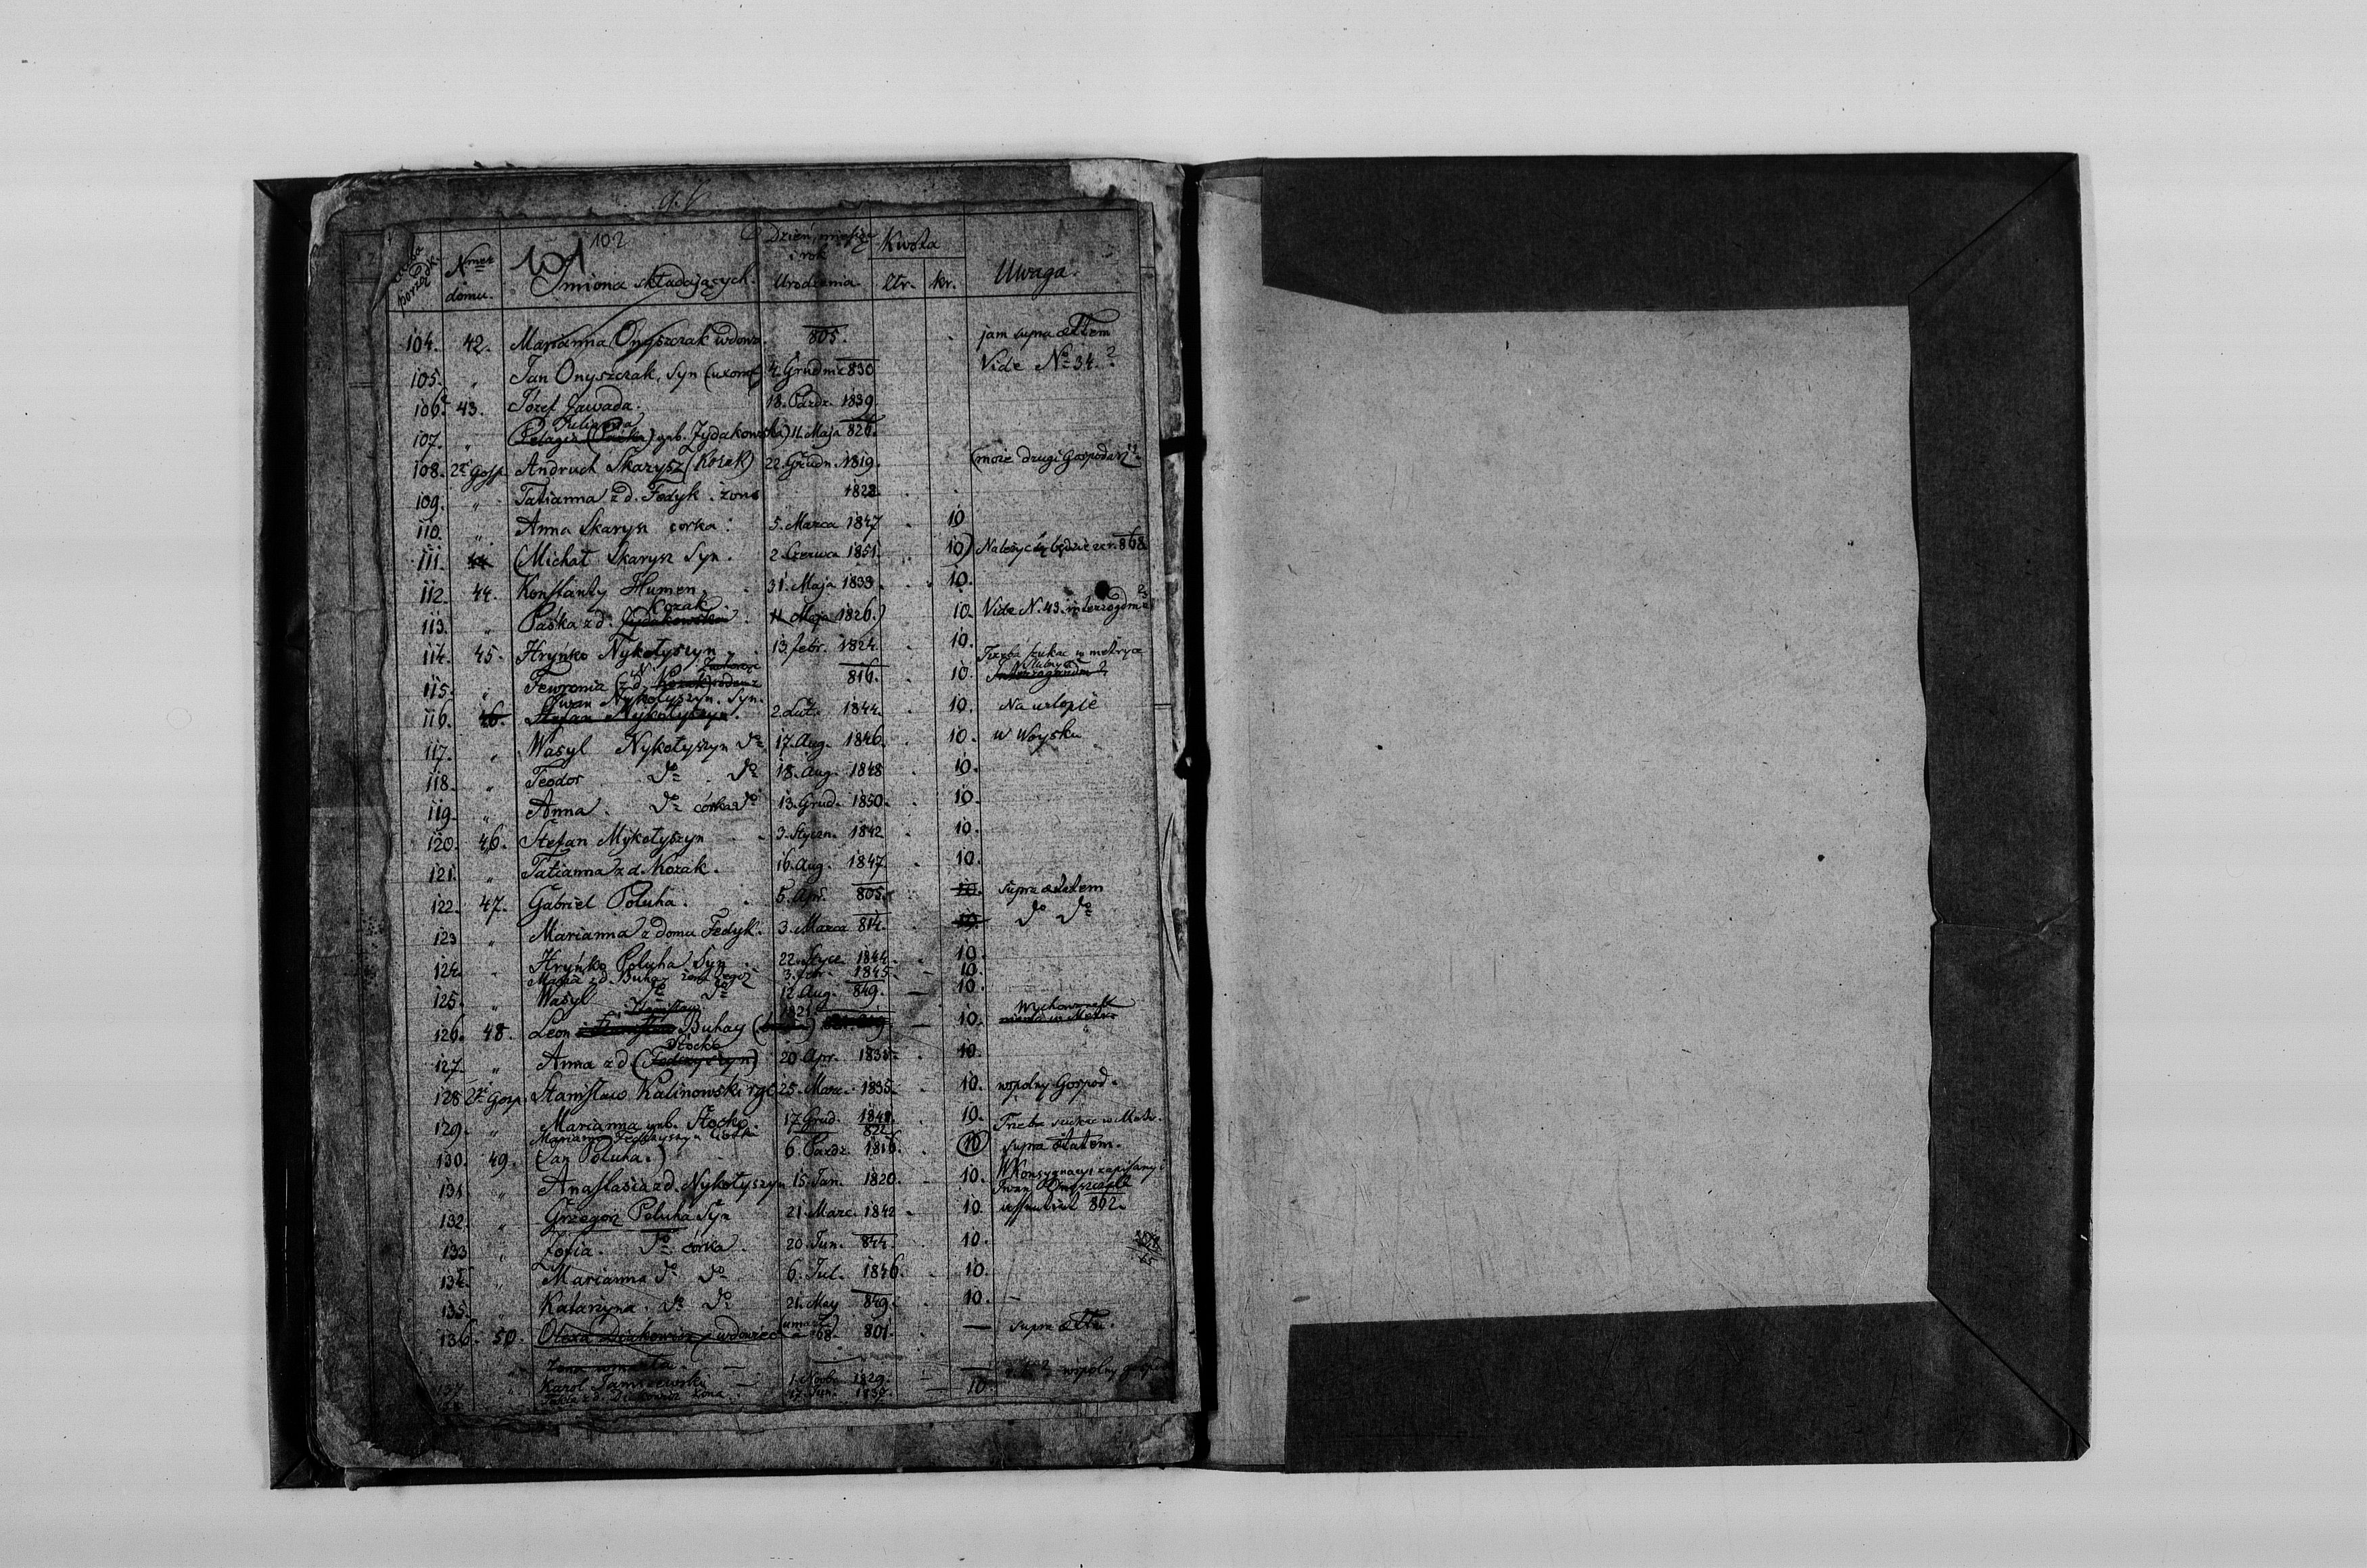 101 102
Liczba porządk. Nmer domu. Imiona składających. Dzień, miesiąc i rok Urodzenia. Kwota złr. kr. Uwaga.
104. 42. Marianna Onyszczak wdowa. 805. jam supra ætatem
105. " Jan Onyszczak, Syn (uxorat) 4. Grudnia 830 Vide No 34.?
106. 43. Józef Zawada. 18. Pazdz. 1839.
Julianna
107. " Pelagia (Paśka) gnb. Zydakowska) 11. Maja 826.
108. 2gi Gosp. Andruch Skarysz (Kozak) 22. Grudn. 1819. (może drugi Gospodarz
109. " Tatianna z d. Fedyk. żona 1822.
110. " Anna Skarysz córka. 5. Marca 1847 10
111. 44 (Michał Skarysz Syn. 2. Czerwca 1851. 10) Należyć będzie z r. 868
112. 44. Konstanty Humen. 31. Maja 1833. 10.
Kozak
113. " Paśka z d. Zydakowska. 11. Maja 1826.) 10. Vide N. 43.
114. 45. Hryńko Nykołyszyn. 13. febr. 1824. 10. Trzeba szukać w metryce
115. " Fewronia (z d. Kozak) 816. 10.
Iwan Nykołyszyn. Syn.
116. 46. Stefan Nykołyszyn. 2. Lut. 1844. 10. Na urlopie
117. " Wasyl Nykołyszyn do 17. Aug. 1846. 10. w Woysku
118. " Teodor do do 18. Aug. 1848 10.
119. " Anna. do córka do 13. Grud. 1850. 10.
120. 46. Stefan Mykołyszyn 3. Styczn. 1842 10.
121. " Tatianna z d. Kozak. 16. Aug. 1847. 10.
122. 47. Gabriel Połuha. 5. Apr. 805. 10. supra ætatem
123 " Marianna z domu Fedyk. 3. Marca 814. 10. do do
124. " Hryńko Połuha Syn 22. Stycz. 1844. 10.
Maria z d. Buhay żona tegoż 3. febr. 1845. 10.
125. " Wasyl do do 12. Aug. 849. 10.
Stanisław
126. 48. Leon Buhay 10.
Stocko
127. " Anna z d. (Fedczyszyn) 20. Apr. 1835. 10.
128 2gi Gosp. Stanisław Kalinowski 25. Marc. 1835. 10. wspolny Gospod.
129. " Marianna gnb. Stocko. 17. Grud. 1848. 10. Trzeba szukać w Metr.
Marianna Fedczyszyn Ciotka 822.
130. 49. (Jan Połuha.) 6. Pazdz. 1816. 10 supra ætatem.
131. " Anastasia z d. Nykołyszyn 15. Jan. 1820. 10. W Konsygnacyi zapisany
132. " Grzegorz Połuha Syn 21. Marc. 1842 10. 862.
133 " Zofia. do córka. 20. Jun. 844. 10.
134. " Marianna do do 6. Jul. 1846. 10.
135. " Katarzyna. do do 21. May 849. 10. —
136. 50. Olexa Diakowicz wdowiec (umarł) 868. 801. — supra ætat.
" żona umarła. —
137 " Karol 1. Novbr. 1829. — wspolny gospod.
z d. Diakowicz żona. 17. Jun. 1837. 10.